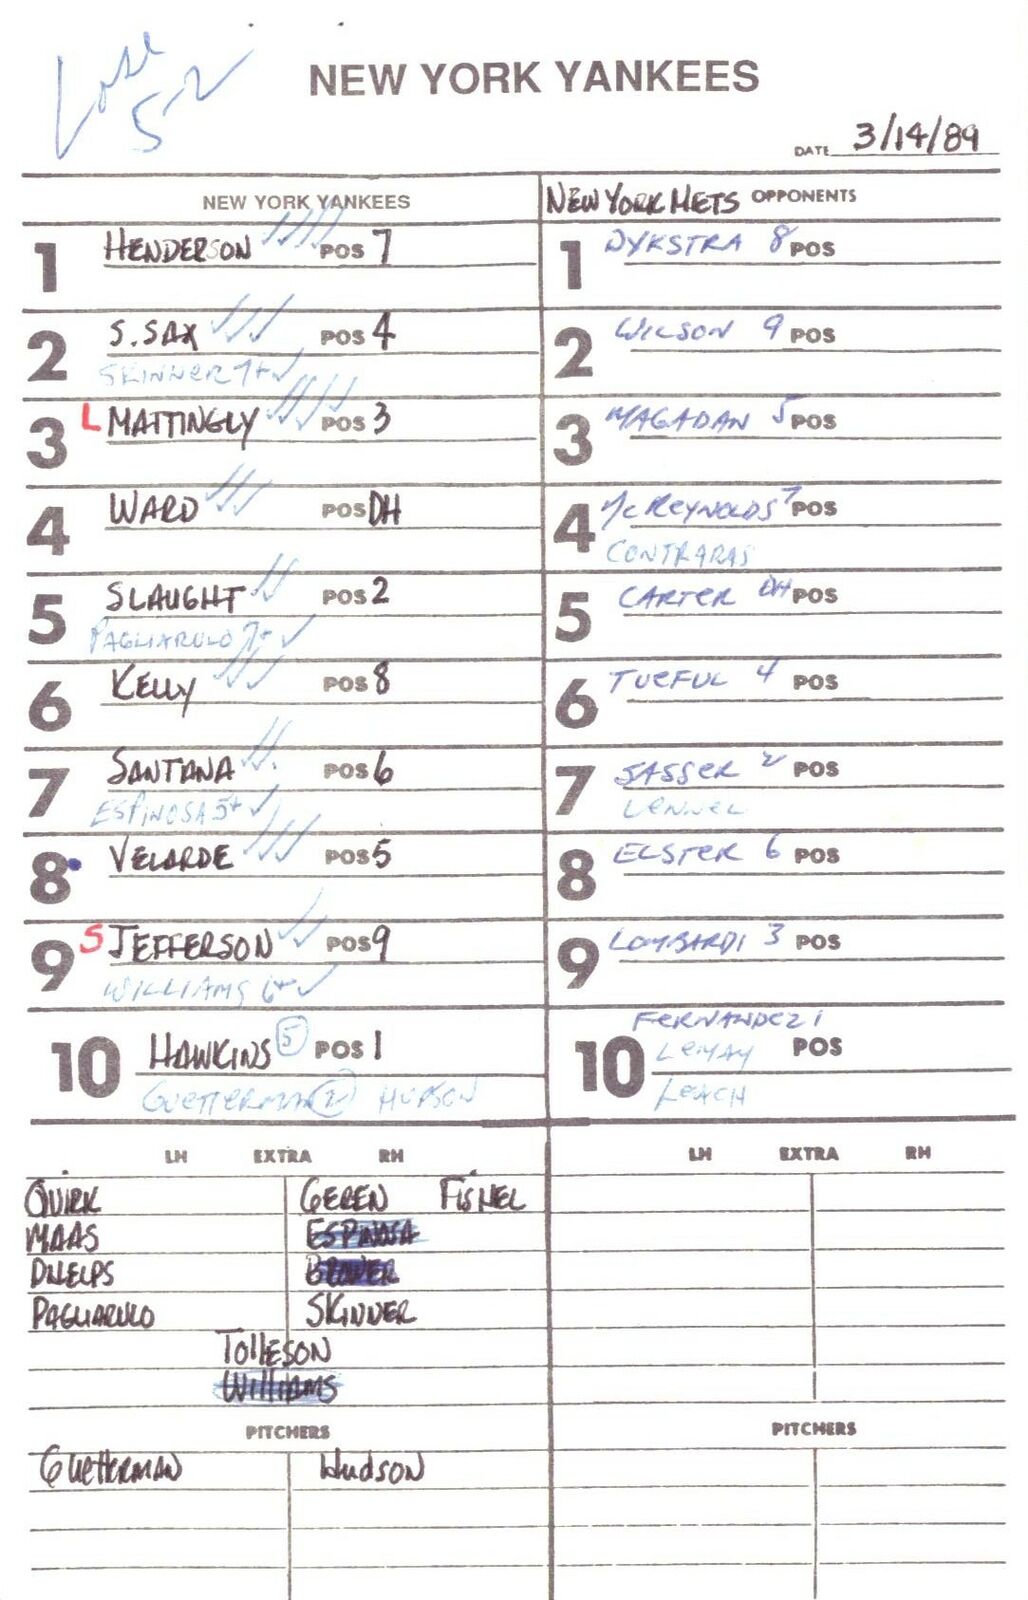 Lose
5-2
NEW YORK YANKEES
DATE 3/14/89
NEW YORK YANKEES
1 HENDERSON POS 7
2 S. SAX POS 4
SKINNER 7+
3 L MATTINGLY POS 3
4 WARD POS DH
5 SLAUGHT POS 2
PAGLIARULO 7+
6 KELLY POS 8
7 SANTANA POS 6
ESPINOSA 5+
8 VELARDE POS 5
9 S JEFFERSON POS 9
WILLIAMS 6+
10 HAWKINS 5 POS 1
GUETTERMAN 2 HUDSON
NEW YORK METS OPPONENTS
1 DYKSTRA 8 POS
2 WILSON 9 POS
3 MAGADAN 5 POS
4 McREYNOLDS 7 POS
CONTRARAS
5 CARTER DH POS
6 TUEFUL 4 POS
7 SASSER 2 POS
LENNEL
8 ELSTER 6 POS
9 LOMBARDI 3 POS
FERNANDEZ 1
10 LEMAY POS
LEACH
LH EXTRA RH
QUIRK GEREN FISHEL
MAAS ESPINOSA
PHELPS BROWER
PAGLIARULO SKINNER
TOLLESON
WILLIAMS
PITCHERS
GUETTERMAN HUDSON
LH EXTRA RH
PITCHERS